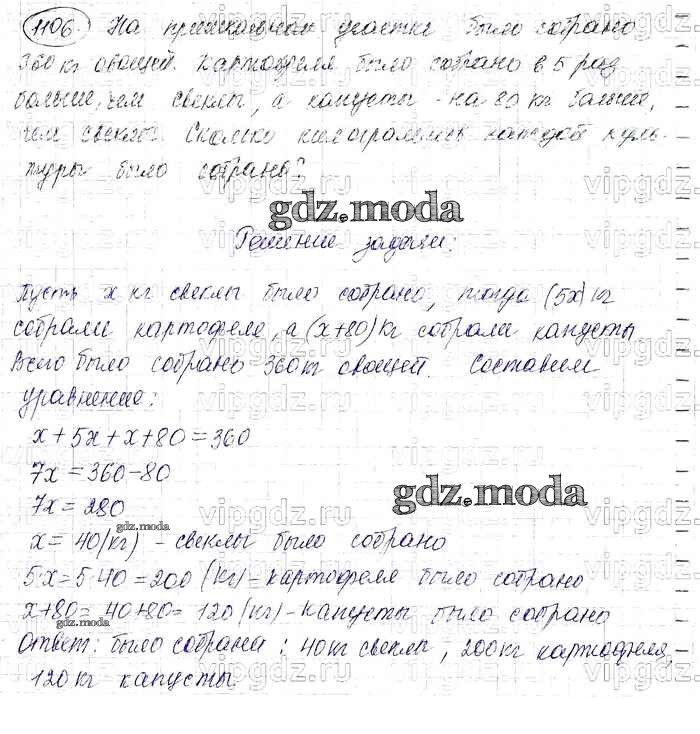 1106. На пришкольном участке было собрано
360 кг овощей. Картофеля было собрано в 5 раз
больше, чем свеклы, а капусты - на 80 кг больше,
чем свеклы. Сколько килограммов каждой куль-
туры было собрано?
gdz.moda
Решение задачи:
Пусть x кг свеклы было собрано, тогда (5x) кг
собрали картофеля, а (x+80) кг собрали капусты
Всего было собрано 360 кг овощей. Составим
уравнение:
x+5x+x+80=360
7x=360-80
gdz.moda
7x=280
gdz.moda
x=40(кг) - свеклы было собрано
5·x=5·40=200 (кг) - картофеля было собрано
x+80=40+80=120 (кг) - капусты было собрано
gdz.moda
Ответ: было собрана: 40кг свеклы, 200кг картофеля,
120 кг капусты.